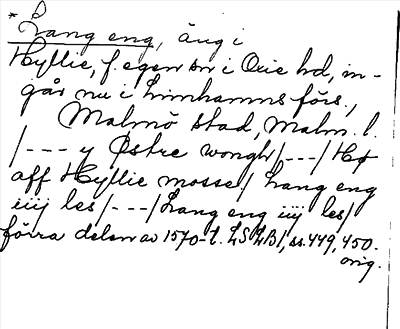 * Lang eng, äng i
Hyllie, f. egen sn i Oxie hd, in-
går nu i Limhamns förs.,
Malmö stad, Malm. l.
/---y Østre wongh/---/ Hø
aff Hyllie mosse/ Lang eng
iiij les/---/Lang eng iiij les/
förra delen av 1570-t. LSLB1, ss. 449, 450.
orig.